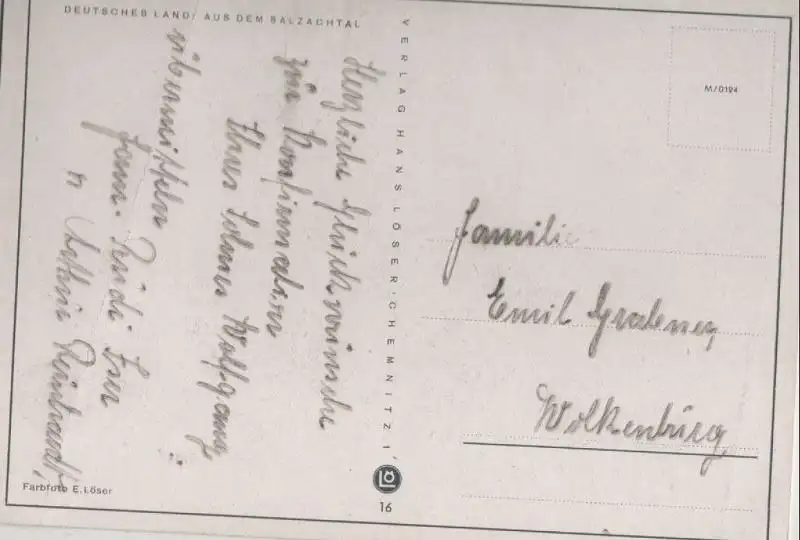 DEUTSCHES LAND / AUS DEM SALZACHTAL
Herzliche Glückwünsche
zur Konfirmation
Ihres Sohnes Wolfgang
übermitteln
Fam.
u
VERLAG HANS LÖSER · CHEMNITZ 1
M/0194
Familie
Emil
Wolkenburg
Farbfoto E. Löser
LÖ
16